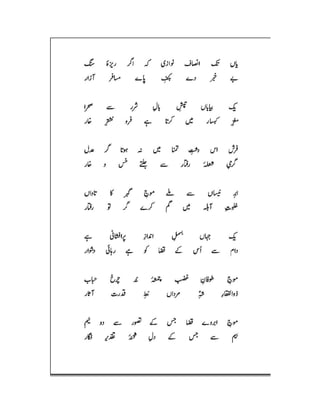 یاں تک انصاف نوازی کہ اگر ریزۂ سنگ
بے خبر دے بکفِ پاے مسافر آزار
یک بیاباں تپشِ بالِ شرر سے صحرا
مغزِ کہسار میں کرتا ہے فرو نشترِ خار
فرش اس دشتِ تمنا میں نہ ہوتا گر عدل
گرمیِ شعلۂ رفتار سے جلتے خس و خار
ابرِ نیساں سے ملے موجِ گہر کا تاواں
خلوتِ آبلہ میں گم کرے گر تو رفتار
یک جہاں بسملِ اندازِ پرافشانی ہے
دام سے اُس کے قضا کو ہے رہائی دشوار
موجِ طوفانِ غضب چشمۂ نہ چرخِ حباب
ذوالفقارِ شہِ مرداں خطِ قدرت آثار
موجِ ابروے قضا جس کے تصور سے دو نیم
بیم سے جس کے دلِ شحنۂ تقدیر فگار